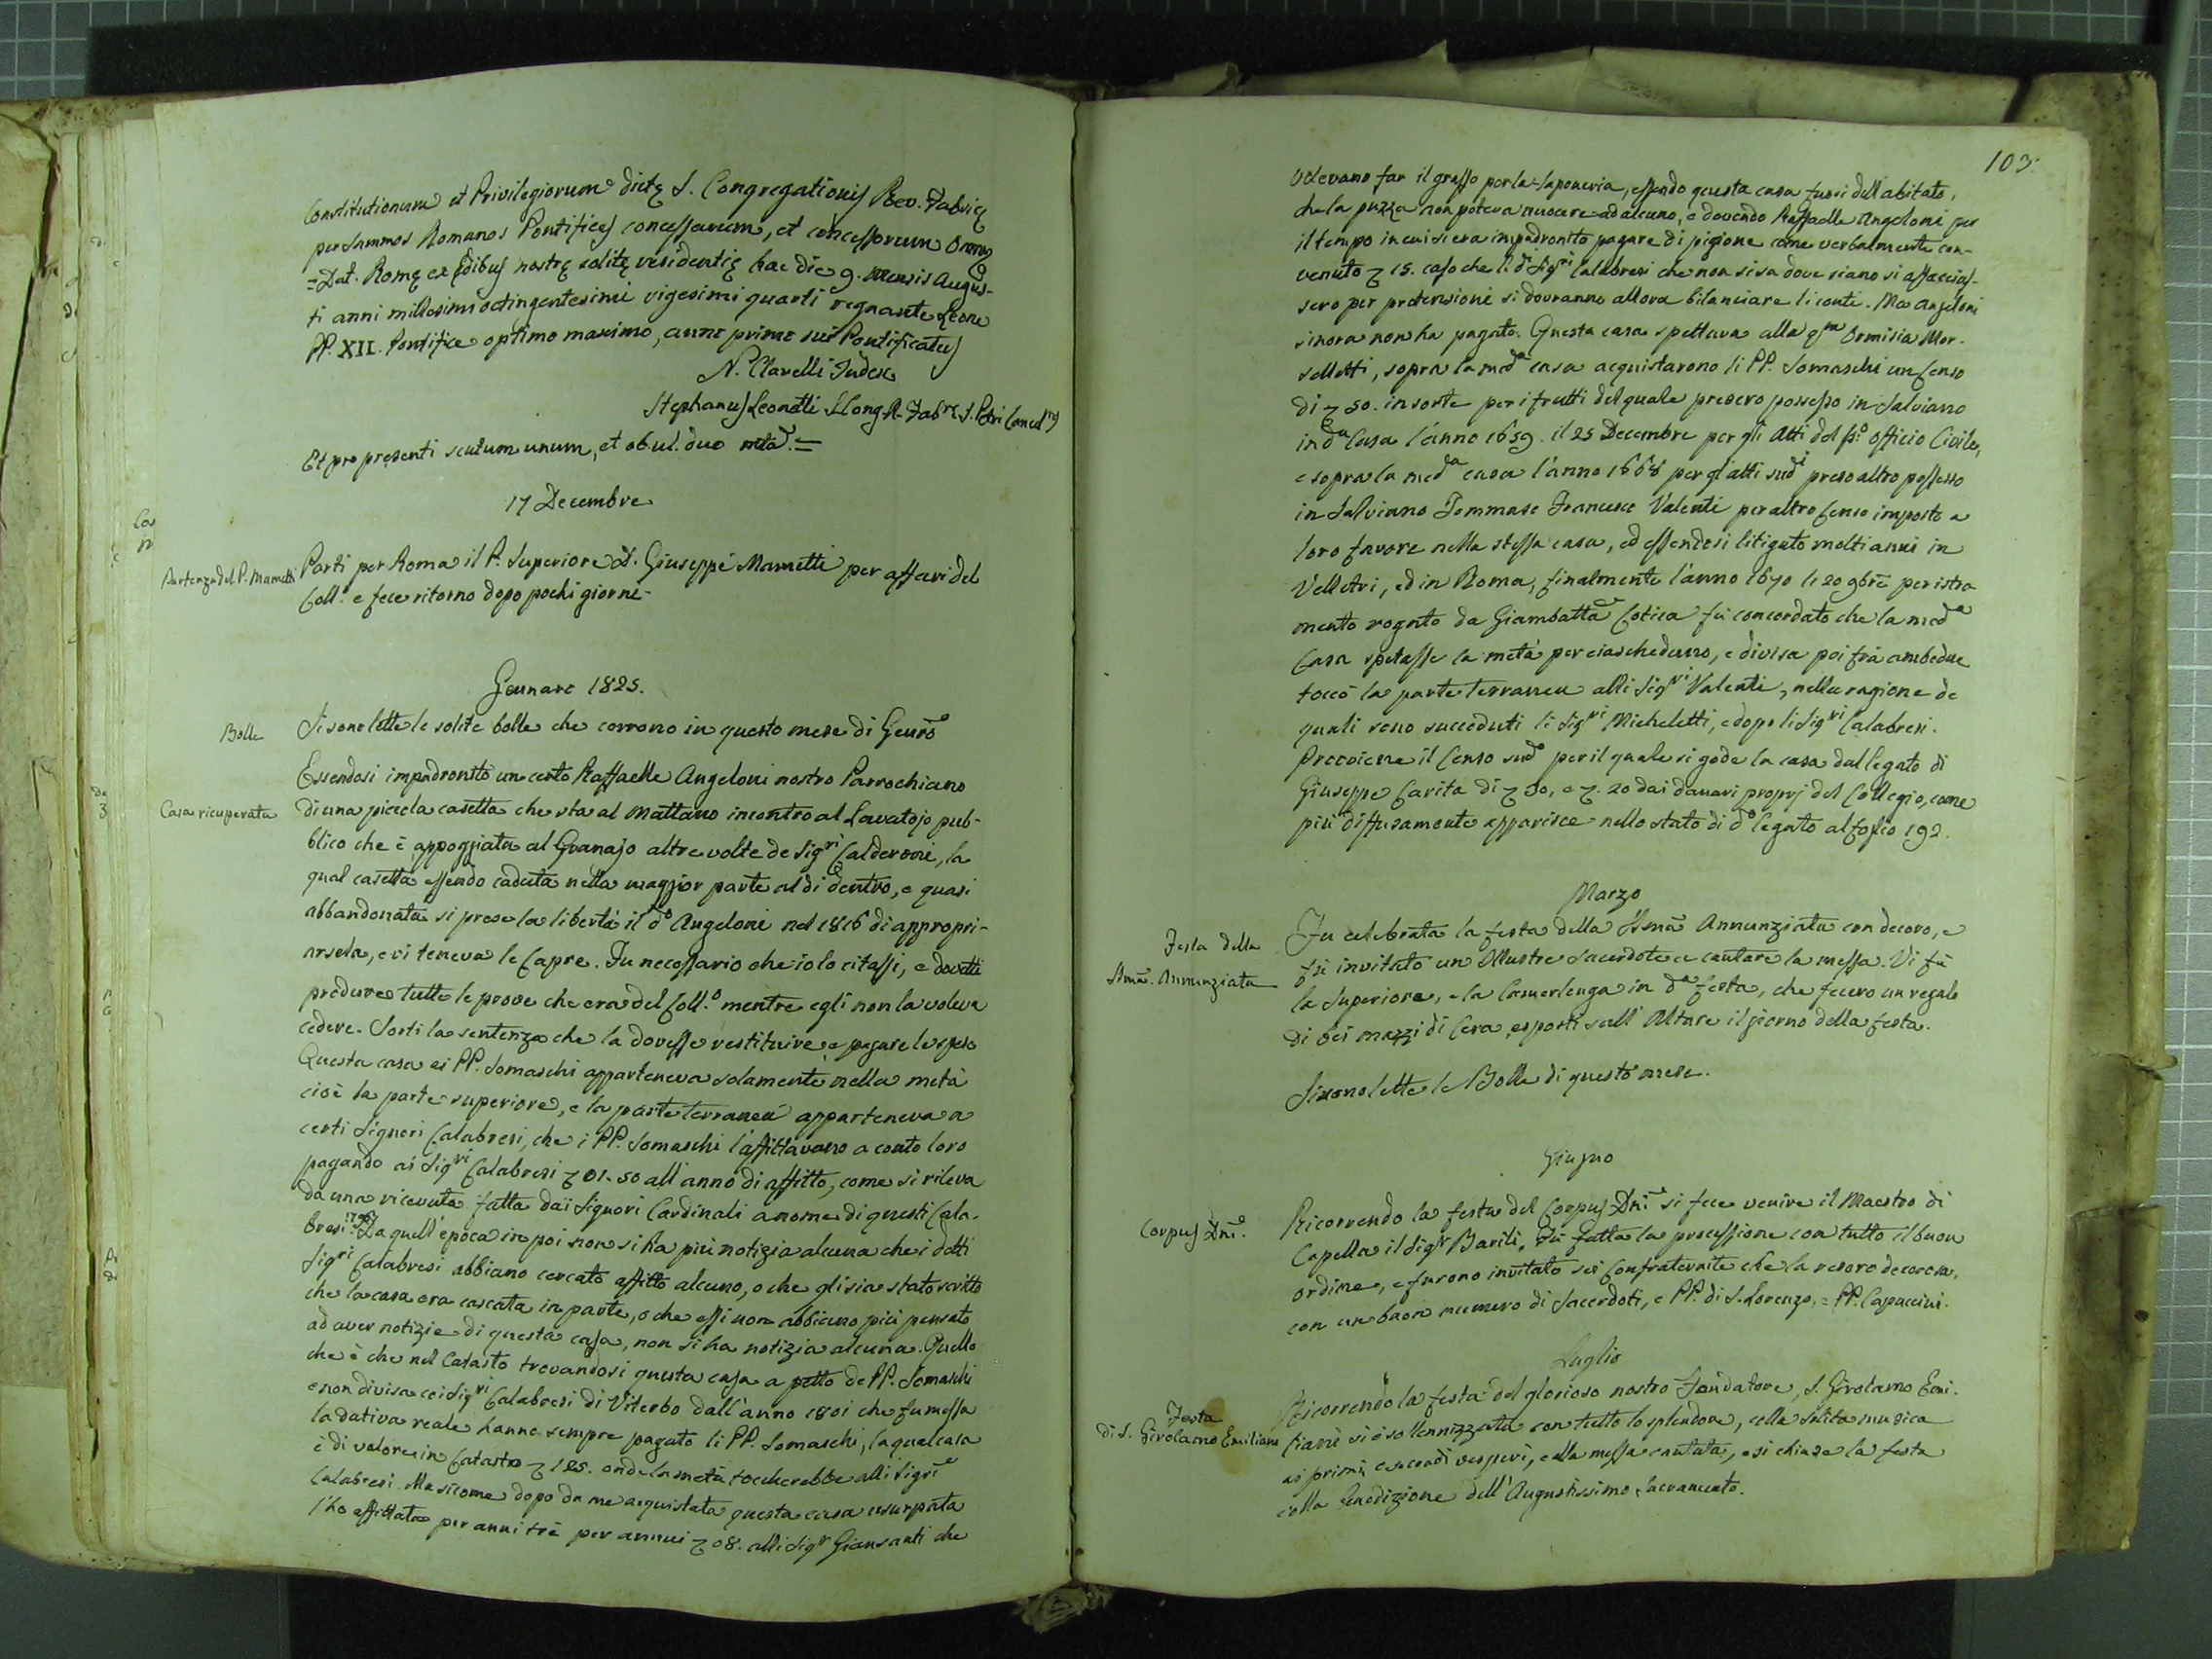 Constitutionum et Privilegiorum dictę S. Congregationis Rev. Fabricę
per Summos Romanos Pontifices concessarum, et concessorum omni
= Dat. Romę ex Ędibus nostrę solitę residentię hac die 9. mensis Augus-
ti anni millesimi octingentesimi vigesimi quarti regnante Leone
PP. XII. Pontifice optimo maximo, anno primo sui Pontificatus
N. Clavelli Judex
Stephanus Leonetti S. Cong. R. Fab.ę S. Petri Cancel.
Et pro presenti scutum unum, et ob.ul. duo mtã. =
17 Decembre
Partenza del P. Mametti
Parti per Roma il P. Superiore D. Giuseppe Mametti per affari del
Coll.o e fece ritorno dopo pochi giorni.
Gennaro 1825.
Bolle
Si sono lette le solite bolle che corrono in questo mese di Genro
Essendosi impadronito un certo Raffaelle Angeloni nostro Parrochiano
Casa ricuperata
di una piccola casetta che sta al Mattano incontro al Lavatojo pub-
blico che è appoggiata al Granajo altre volte de Sigri Calderoni, la
qual casetta essendo caduta nella maggior parte al di dentro, e quasi
abbandonata si prese la libertà il do Angeloni nel 1816 di appropri-
arsela, e vi teneva le Capre. Fu necessario che io lo citassi, e dovetti
produrre tutte le prove che era del Coll.o mentre egli non la voleva
cedere. Sortì la sentenza che la dovesse restituire e pagare le spese
Questa casa ai PP. Somaschi apparteneva solamente nella metà
cioè la parte superiore, e la parte terranea apparteneva a
certi Signori Calabresi, che i PP. Somaschi l'affittavano a conto loro
pagando ai Sigri Calabresi ꝫ 01.50 all'anno di affitto, come si rileva
da una ricevuta fatta dai Signori Cardinali a nome di questi Cala-
bresi. Da quell'epoca in poi non si ha più notizia alcuna che i detti
Sigri Calabresi abbiano cercato affitto alcuno, o che gli sia stato scritto
che la casa era cascata in parte, o che essi non abbiano più pensato
ad aver notizie di questa casa, non si ha notizia alcuna. Quello
che è che nel Catasto trovandosi questa casa a petto de PP. Somaschi
e non divisa coi Sigri Calabresi di Viterbo dall'anno 1801 che fu messa
la dativa reale hanno sempre pagato li PP. Somaschi, la qual casa
è di valore in Catastro ꝫ 125. onde la metà toccherebbe alli Sigri
Calabresi. Ma siccome dopo da me acquistata questa casa usurpata
l'ho affittata per anni tre per annui ꝫ 08. alli Sigr Giansanti che
103.
volevano far il grasso per la Saponeria, essendo questa casa fuori dell'abitato,
che la puzza non poteva nuocere ad alcuno, e dovendo Raffaelle Angeloni per
il tempo in cui si era impadronito pagare di pigione come verbalmente con-
venuto ꝫ 15. caso che li di Sigri Calabresi che non si sa dove siano si affaccias-
sero per pretensioni si dovranno allora bilanciare li conti. Ma Angeloni
sinora non ha pagato. Questa casa spettava alla qm Ormisia Mor-
selletti, sopra la meda casa acquistarono li PP. Somaschi un Censo
di ꝫ 50. in sorte per i frutti del quale presero possesso in Salviano
in da Casa l'anno 1659. il 25 Decembre per gli Atti del so Officio Civile,
e sopra la meda casa l'anno 1668 per gl'atti sudi preso altro possesso
in Salviano Tommaso Francesco Valenti per altro Censo imposto a
loro favore nella stessa casa, ed essendosi litigato molti anni in
Velletri, ed in Roma, finalmente l'anno 1670 li 20 9bre per istro-
mento rogato da Giambatta Cotica fù concordato che la meda
Casa spetasse la metà per ciascheduno, e divisa poi frà ambedue
toccò la parte terranea alli Sigri Valenti, nella ragione de
quali sono succeduti li Sigri Micheletti, e dopo li Sigri Calabresi.
Proviene il Censo sudo per il quale si gode la casa dal legato di
Giuseppe Carita di ꝫ 30, e ꝫ. 20 dai danari proprj del Collegio, come
più diffusamente apparisce nello stato di do legato al foglio 192.
Marzo
Festa della
Ssma. Annunziata
Fu celebrata la festa della Ssma Annunziata con decoro, e
fù invitato un Illustre Sacerdote a cantare la messa. Vi fù
la Superiora, e la Camerlenga in da festa, che fecero un regalo
di sei mazzi di Cera, esposti sull'Altare il giorno della festa.
Si sono lette le Bolle di questo mese.
Giugno
Corpus Dni.
Ricorrendo la festa del Corpus Dni si fece venire il Maestro di
Capella il Sigr Barili, Fù fatta la processione con tutto il buon
ordine, e furono invitate sei Confraternite che la resero decorosa,
con un buon numero di Sacerdoti, e PP. di S. Lorenzo, e PP. Capuccini.
Luglio
Festa
di S. Girolamo Emiliani
Ricorrendo la festa del glorioso nostro Fondatore, S. Girolamo Emi-
liani si è sollennizzata con tutto lo splendore, colla solita musica
ai primi, e secondi vesperi, e alla messa cantata, e si chiuse la festa
colla Benedizione dell'Augustissimo Sacramento.